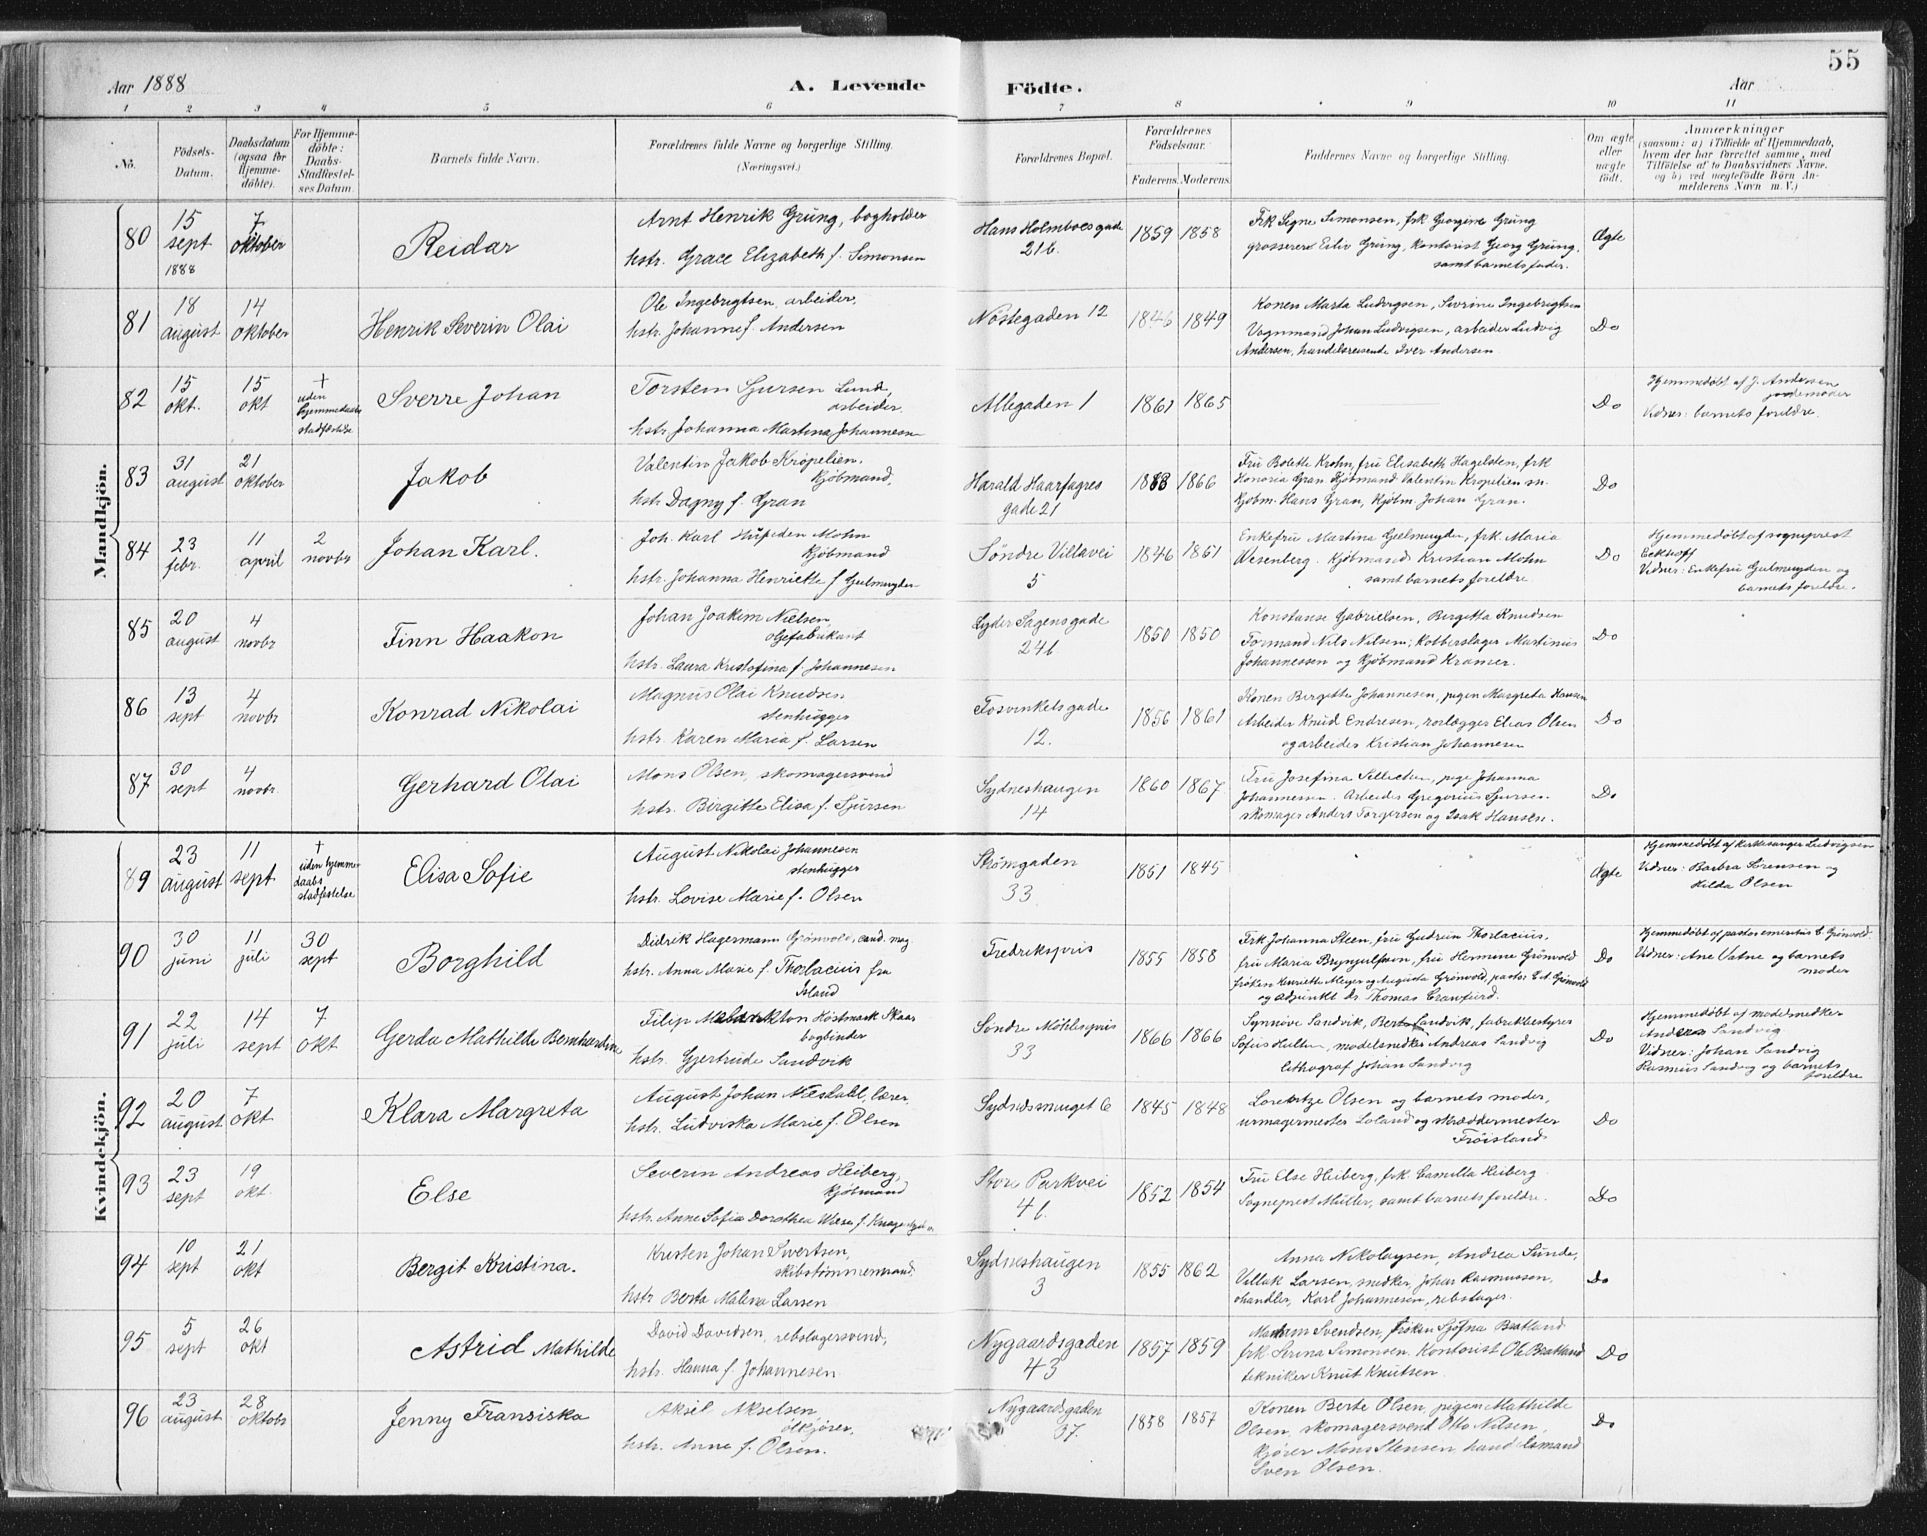 55
Aar 1888
A. Levende Födte.
Aar
1 2 3 4 5 6 7 8 9 10 11
No.
Födsels-Datum.
Daabsdatum (ogsaa for Hjemme-döbte).
For Hjemme-döbte: Daabs-Stadfæstel-ses Datum.
Barnets fulde Navn.
Forældrenes fulde Navne og borgerlige Stilling.
(Næringsvei.)
Forældrenes Bopæl.
Forældrenes Födselsaar.
Faderens. Moderens.
Faddernes Navne og borgerlige Stilling.
Om ægte eller uægte födt.
Anmærkninger
(saasom: a) i Tilfælde af Hjemmedaab,
hvem der har forrettet samme, med
Tilföielse af to Daabsvidners Navne.
og b) ved uægtefödte Börn An-
melderens Navn m. V.)
Mandkjön.
80 15 sept 1888 7 oktober Reidar
Arnt Henrik Grung, bogholder
hstr. Grace Elizabeth f. Simonsen
Hans Holmboesgade 21b. 1859 1858
Frk Signe Simonsen, frk Georgine Grung
grosserer Eiliv Grung, kontorist Georg Grung,
samt barnets fader.
Ægte
81 18 august 14 oktober Henrik Severin Olai
Ole Ingebrigtsen, arbeider,
hstr. Johanne f. Andersen
Nöstegaden 12 1846 1849
Konen Marta Ludvigsen, Sivrine Ingebrigtsen
Vognmand Johan Ludvigsen, arbeider Ludvig
Andersen, handelsreisende Iver Andersen
Do
82 15 okt. 15 okt † uden hjemmedaabs stadfæstelse Sverre Johan
Torstein Sjursen Lund, arbeider.
hstr. Johanna Martina Johannesen
Allegaden 1 1861 1865
Do
Hjemmedöbt af J. Andersen
jordemoder
Vidner: barnets foreldre.
83 31 august 21 oktober Jakob
Valentin Jakob Kröpelien, Kjöbmand,
hstr. Dagny f. Gran
Harald Haarfagres gade 21 1866
Fru Bolette Krohn, fru Elisabeth Hagelsten, frk
Honoria Gran Kjöbmand Valentin Kröpelien sn.
Kjöbm. Hans Gran, Kjöbm. Johan Gran.
Do
84 23 febr. 11 april 2 novbr Johan Karl.
Joh. Karl Hüpeden Mohn
Kjöbmand
hstr. Johanna Henriette f Gulmuyden
Söndre Villavei 5 1846 1861
Enkefru Martina Gulmuyden, frk. Maria
Wesenberg. Kjöbmand Kristian Mohn
samt barnets foreldre.
Do
Hjemmedöbt af sogneprest
Eckhoff
Vidner: Enkefru Gulmuyden og
barnets foreldre.
85 20 august 4 novbr Finn Haakon
Johan Joakim Nielsen,
oljefabrikant
hstr. Laura Kristofina f. Johannesen
Lyder Sagens gade 24b 1850 1850
Konstanse Gabrielsen, Bergitta Knudsen
Formand Nils Nilsen; kobberslager Martinius
Johannessen og Kjöbmand Kramer.
Do
86 13 sept 4 novbr Konrad Nikolai
Magnus Olai Knudsen
stenhugger
hstr. Karen Maria f. Larsen
Fosvinkelsgade 12. 1856 1861
Konen Birgitte Johannesen, pigen Margreta Hansen
Arbeider Knud Endresen, rorlægger Elias Olsen
og arbeider Kristian Johannesen
Do
87 30 sept 4 novbr. Gerhard Olai
Mons Olsen, skomagersvend
hstr. Birgitte Elisa f. Sjursen
Sydneshaugen 14 1860 1867
Fru Josefina, pige Johanna
Johannessen. Arbeider Gregorius Sjursen.
skomager Anders Torgersen og Isak Hansen.
Do
Kvindekjön.
89 23 august 11 sept † uden hjemmedaabs stadfestelse Elisa Sofie
August Nikolai Johannesen
stenhugger
hstr. Lovise Marie f. Olsen
Strömgaden 33 1851 1845
Ægte
Hjemmedöbt af Kirkesanger Ludvigsen
Vidner: Barbra Sörensen og
Hilda Olsen
90 30 juni 11 juli 30 sept Borghild
Didrik Hagermann Grönvold, cand. mag.
hstr. Anna Marie f. Thorlacius fra
Island
Fredrikspris 1855 1858
Frk Johanna Steen, fru Gudrun Thorlacius,
fru Maria Brynjulfsen, fru Hermine Grönvold
fröken Henriette Meyer og Augusta Grönvold, pastor E.A. Grönvold
og adjunkt dr. Thomas Crawfurd.
Do
Hjemmedöbt af pastor emeritus C. Grönvold.
Vidner: Ane Vatne og barnets
moder
91 22 juli 14 sept 7 okt Gerda Mathilde Bernhardine
Filip Höstmark Skaar
bogbinder
hstr. Gjertrude Sandvik
Söndre Möhlenpris 33 1866 1866
Synnöve Sandvik, Berta Sandvik, fabrikbestyrer
Sofus Hulten, modelsnedker Andreas Sandvig
lithograf Johan Sandvig
Do
Hjemmedöbt af modelsnedker
Andreas Sandvig
Vidner: Johan Sandvig
Rasmus Sandvig og barnets
foreldre
92 20 august 7 okt Klara Margreta
August Johan Næstahl, lærer,
hstr. Ludviska Marie f. Olsen
Sydnessmuget 6 1845 1848
Lorentze Olsen og barnets moder,
urmagermester Loland og skræddermester
Fröisland
Do
93 23 sept 19 okt. Else
Severin Andreas Heiberg
Kjöbmand
hstr. Anne Sofia Dorothea Wiese f.
Store Parkvei 4b. 1852 1854
Fru Else Heiberg, frk. Camilla Heiberg
Sogneprest Müller, samt barnets foreldre.
Do
94 10 sept 21 okt Bergit Kristina.
Kristen Johan Sivertsen,
skibstömmermand.
hstr Berta Malena Larsen
Sydneshaugen 3 1855 1862
Anna Nikolaysen, Andrea Sunde,
Villak Larsen, snedker, Johan Rasmussen,
ohandler, Karl Johannesen, rebslager.
Do
95 5 sept 26 okt Astrid Mathilde
David Davidsen, rebslagersvend,
hstr. Hanna f Johannesen
Nygaardsgaden 43 1857 1859
Madam Svendsen, fröken Sjöfna Bratland
frk Serina Simonsen. Kontorist Ole Bratland
tekniker Knut Knutsen.
Do
96 23 august 28 oktobr Jenny Fransiska
Aksel Akselsen
ölkjörer,
hstr. Anne f. Olsen.
Nygaardsgaden 37. 1858 1857
Konen Berte Olsen, pigen Mathilde
Olsen, skomagersvend Otto Nilsen,
kjörer Mons Stensen, handelsmand
Sven Olsen.
Do